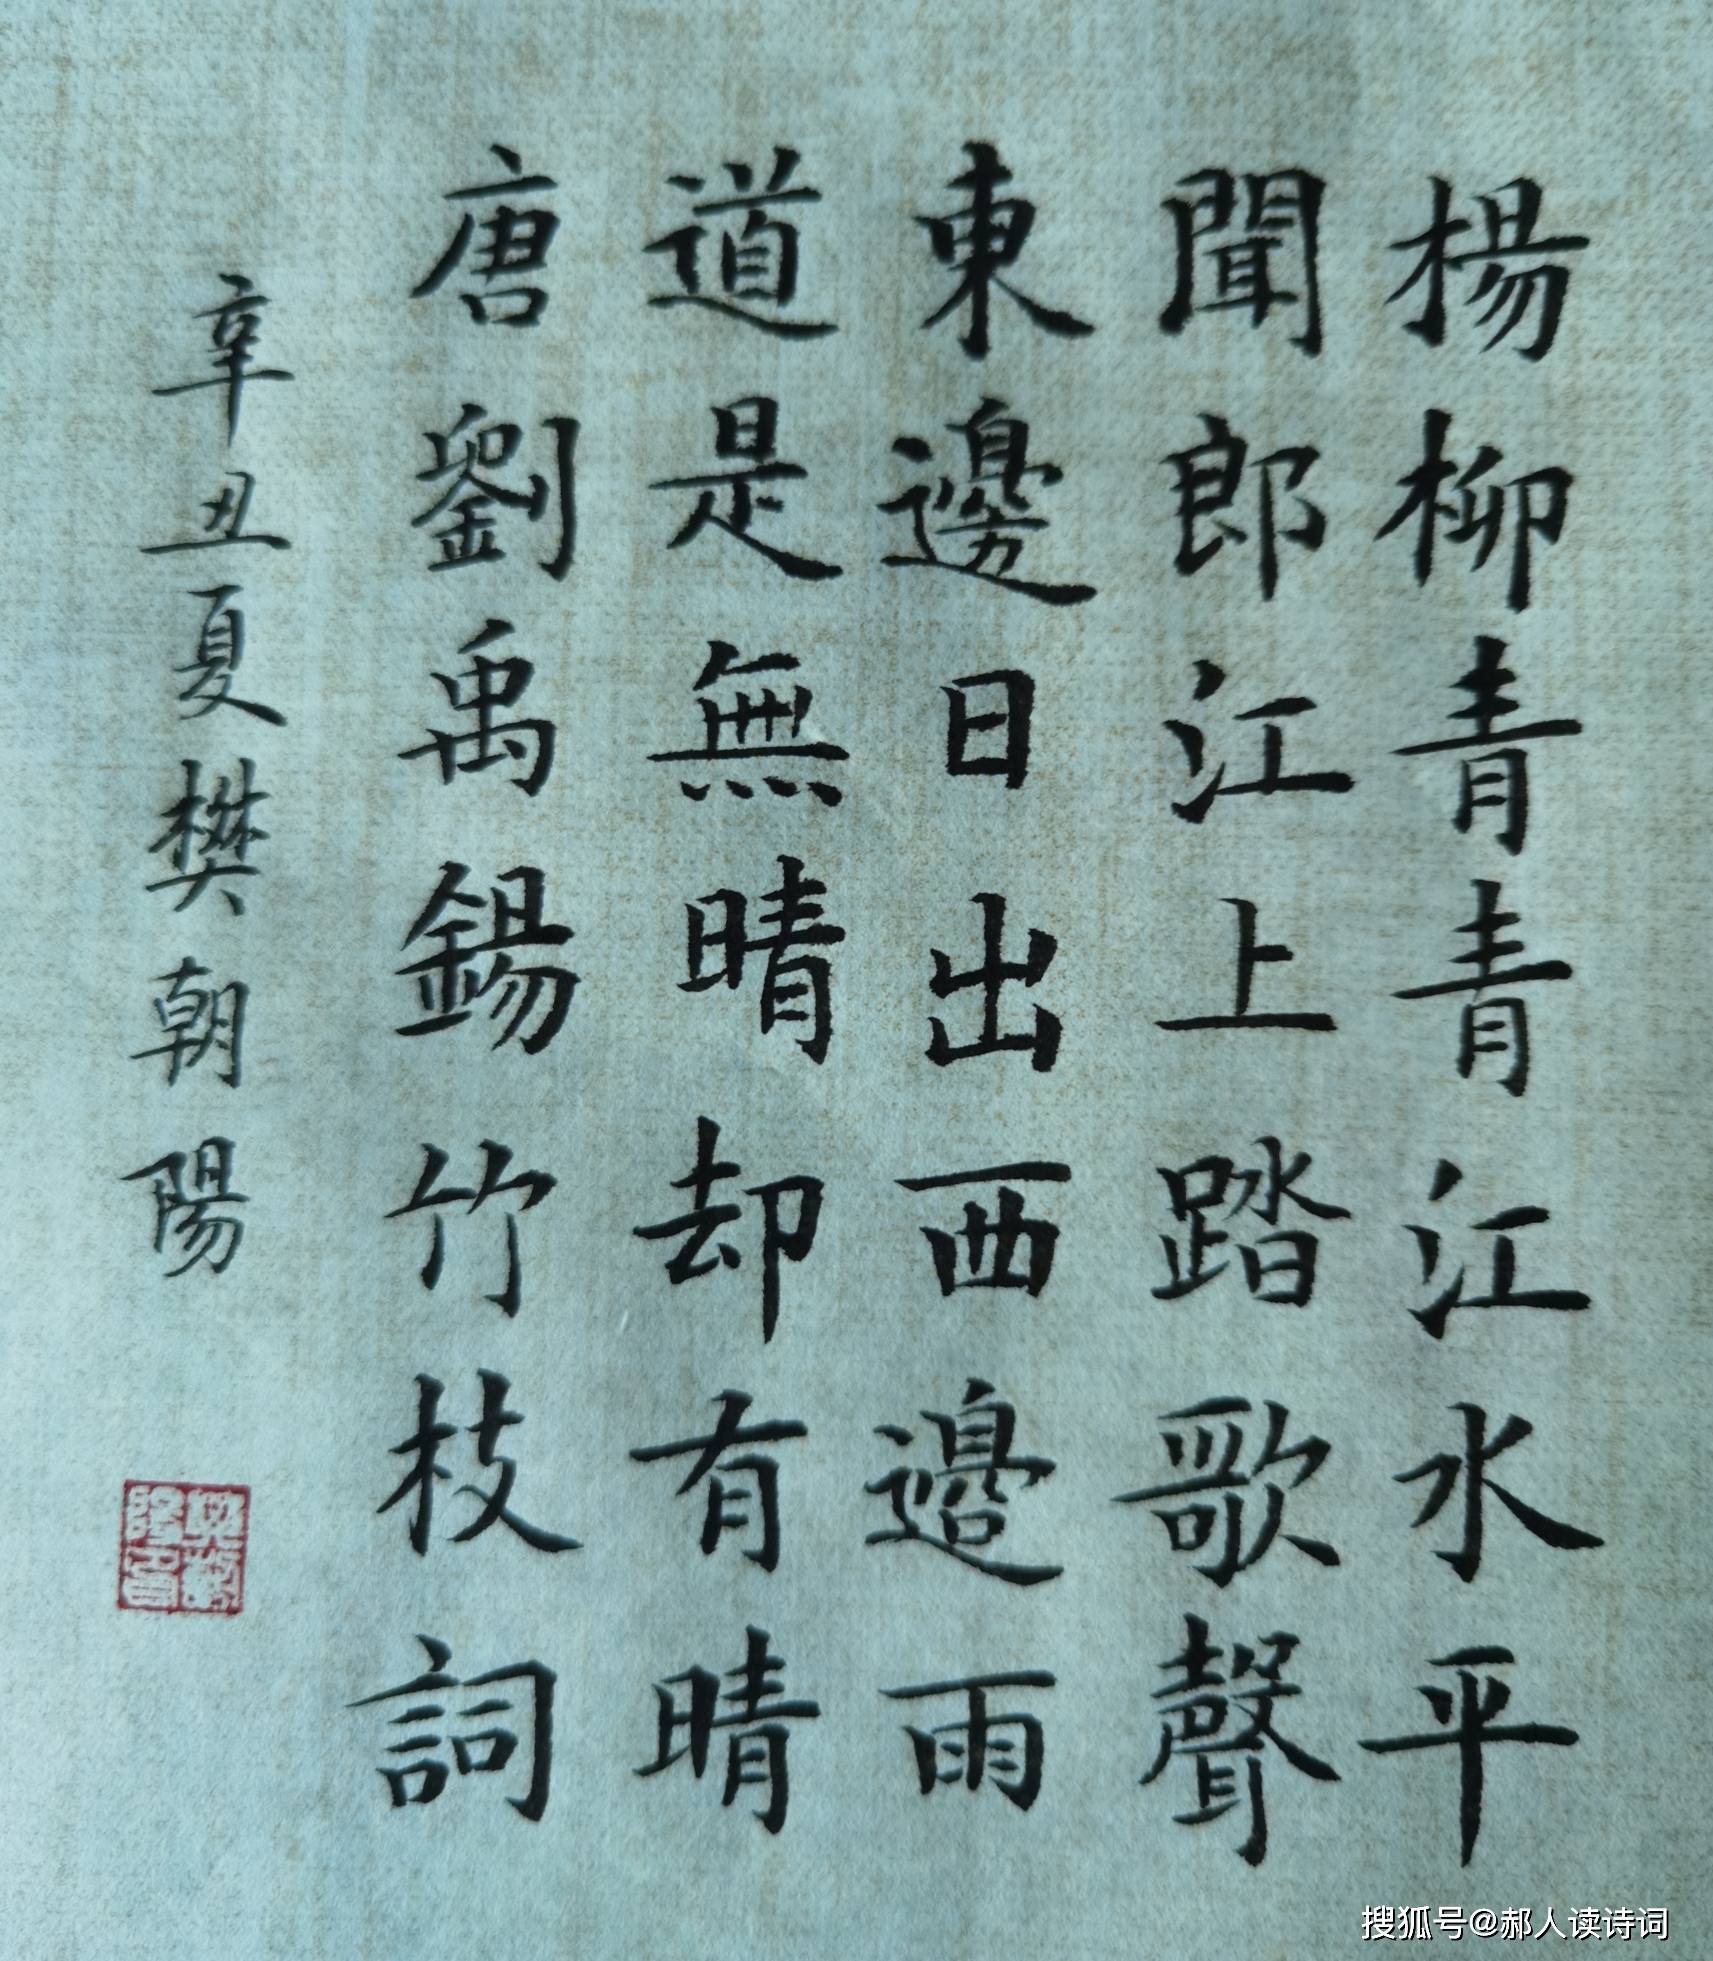 楊柳青青江水平
聞郎江上踏歌聲
東邊日出西邊雨
道是無晴却有晴
唐劉禹錫竹枝詞
辛丑夏樊朝陽
搜狐号@郝人读诗词